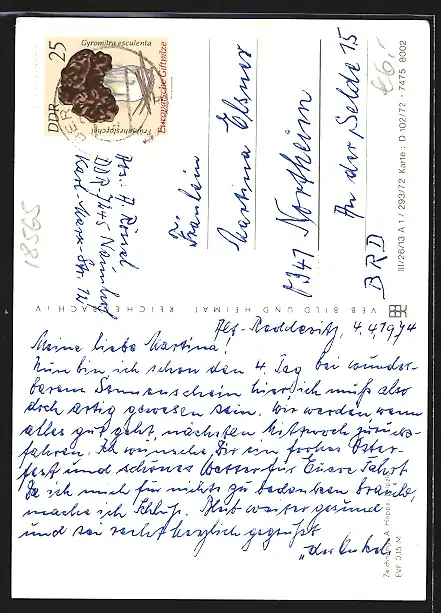 25
Gyromitra esculenta
DDR
Frühjahrslorchel
Europäische Giftpilze
18565
Abs.: A. Rönsch
DDR-7245 Naunhof
Karl-Marx-Str. 12
Fräulein
Martina Elsner
3341 Northeim
An der Selde 15
BRD
66,-
III/26/13 A 1 / 293/72 Karte: D 102/72 - 7475 8002
VEB BILD UND HEIMAT REICHENBACH i V
Alt-Reddevitz, 4.4.1974
Meine liebe Martina!
Nun bin ich schon den 4. Tag bei wunder-
barem Sonnenschein hier, ich muß also
doch artig gewesen sein. Wir werden wenn
alles gut geht, nächsten Mittwoch zurück-
fahren. Ich wünsche Dir ein frohes Oster-
fest und schönes Wetter für Euere Fahrt
Da ich mich für nichts zu bedanken brauche,
mache ich Schluß. Bleib weiter gesund
und sei recht herzlich gegrüßt
"der Onkel"
Zeichnung: A. Hoppe,
EVP 0,15 M